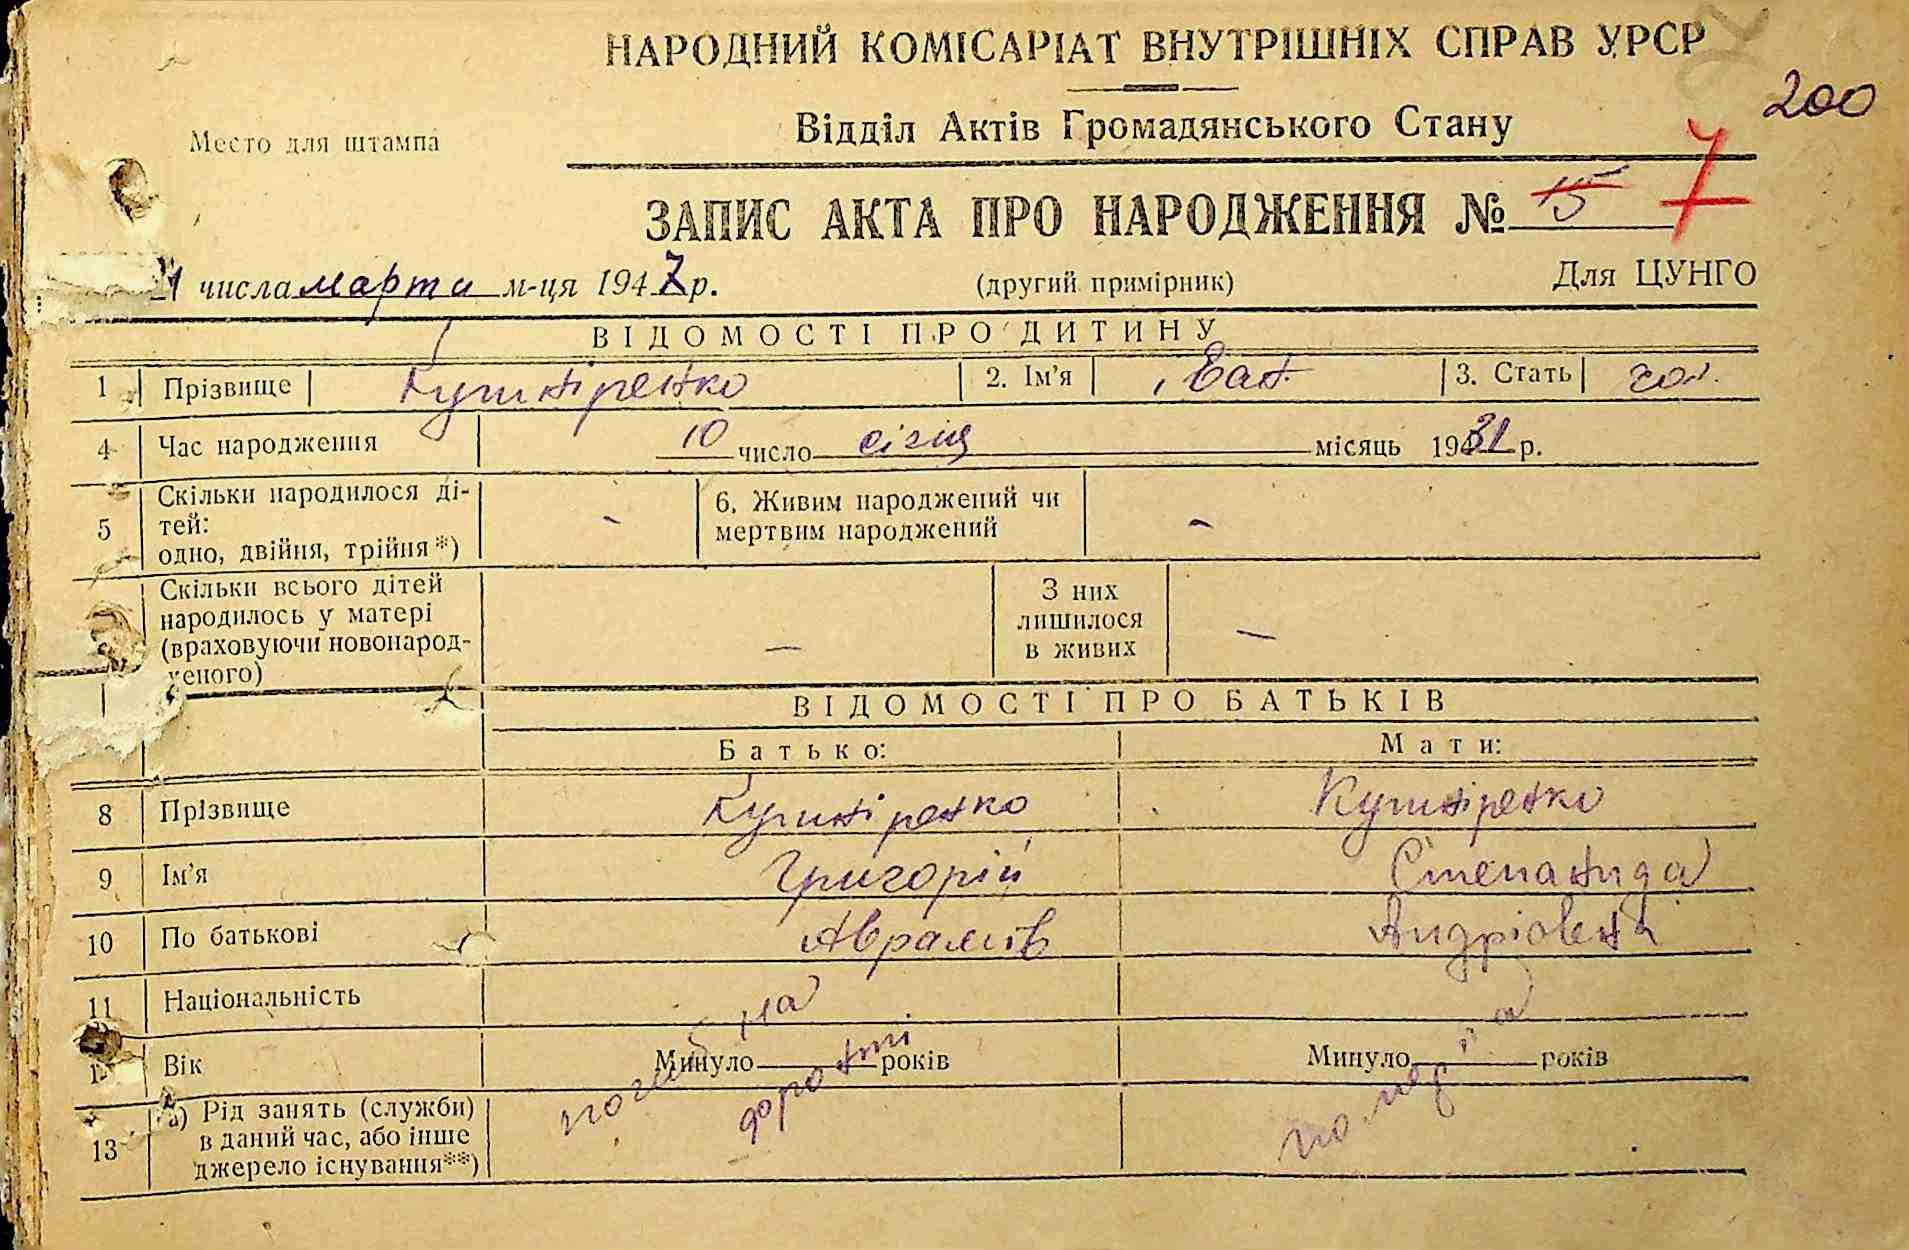 НАРОДНИЙ КОМІСАРІАТ ВНУТРІШНІХ СПРАВ УРСР
200
Відділ Актів Громадянського Стану
Место для штампа
ЗАПИС АКТА ПРО НАРОДЖЕННЯ № 15 7
1 числа марта м-ця 1947 р. (другий примірник) Для ЦУНГО
ВІДОМОСТІ ПРО ДИТИНУ
1 Прізвище Кушніренко 2. Ім'я Іван 3. Стать чол.
4 Час народження 10 число січня місяць 1931 р.
5 Скільки народилося ді-
тей:
одно, двійня, трійня*) - 6. Живим народжений чи
мертвим народжений -
Скільки всього дітей
народилось у матері
(враховуючи новонарод-
женого) — З них
лишилося
в живих —
ВІДОМОСТІ ПРО БАТЬКІВ
Батько: Мати:
8 Прізвище Кушніренко Кушніренко
9 Ім'я Григорій Степанида
10 По батькові Аврамів Андріовна
11 Національність
Вік Минуло років Минуло років
13 а) Рід занять (служби)
в даний час, або інше
джерело існування**)
на фронті
померла